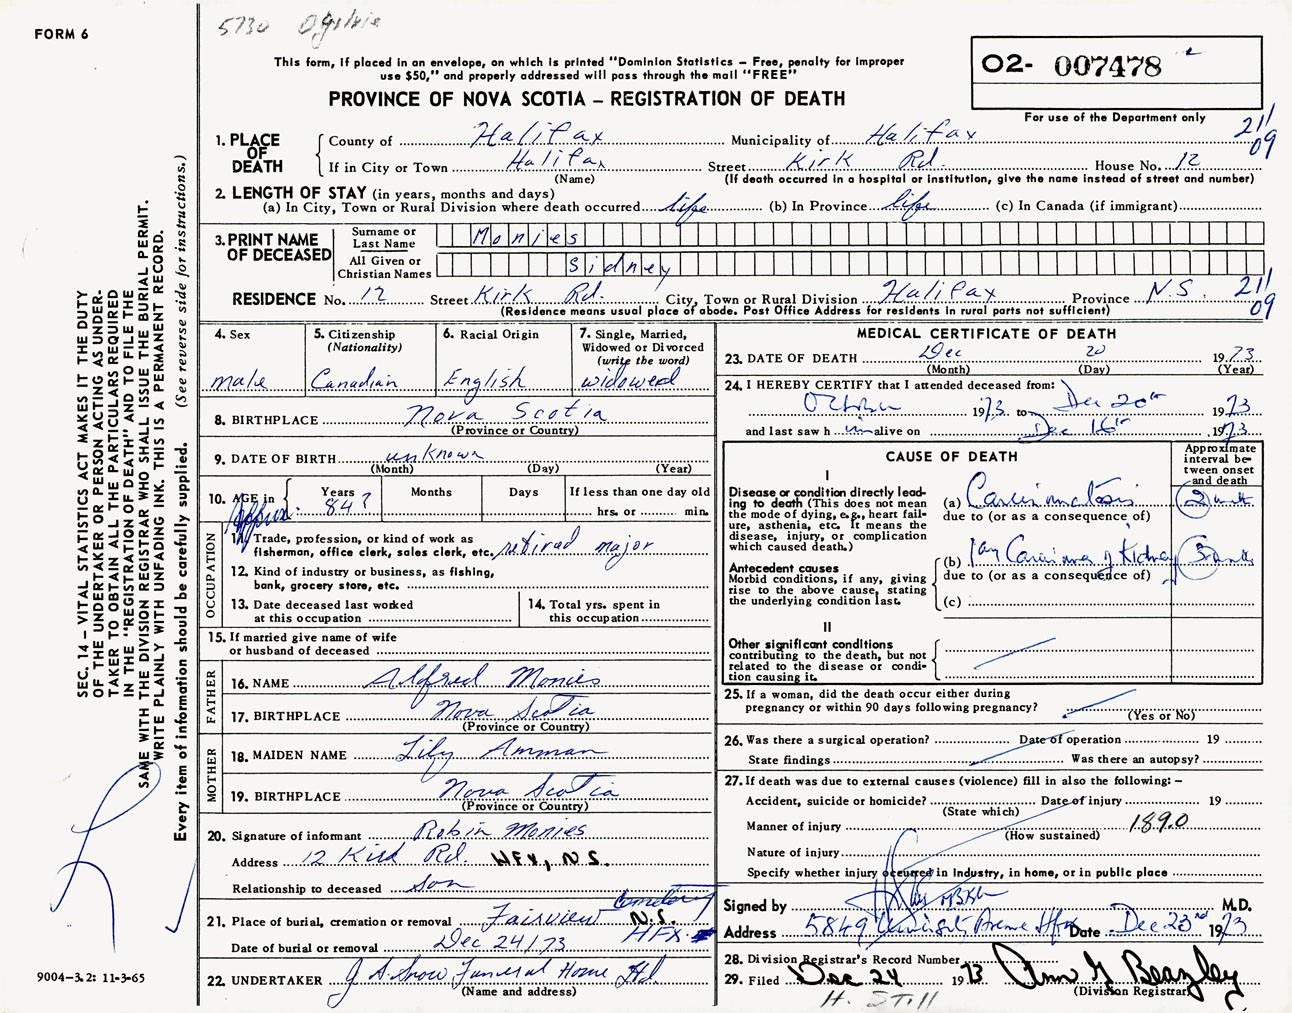 FORM 6
5730 Ogilvie
This form, if placed in an envelope, on which is printed "Dominion Statistics – Free, penalty for improper
use $50," and properly addressed will pass through the mail "FREE"
PROVINCE OF NOVA SCOTIA – REGISTRATION OF DEATH
02- 007478
For use of the Department only
211
09
1. PLACE OF DEATH
County of Halifax Municipality of Halifax
If in City or Town Halifax Street Kirk Rd. House No. 12
(Name) (If death occurred in a hospital or institution, give the name instead of street and number)
2. LENGTH OF STAY (in years, months and days)
(a) In City, Town or Rural Division where death occurred life (b) In Province life (c) In Canada (if immigrant)
3. PRINT NAME OF DECEASED
Surname or Last Name Monies
All Given or Christian Names Sidney
RESIDENCE No. 12 Street Kirk Rd. City, Town or Rural Division Halifax Province N.S. 211
(Residence means usual place of abode. Post Office Address for residents in rural parts not sufficient) 09
4. Sex
male
5. Citizenship
(Nationality)
Canadian
6. Racial Origin
English
7. Single, Married,
Widowed or Divorced
(write the word)
widowed
8. BIRTHPLACE Nova Scotia
(Province or Country)
9. DATE OF BIRTH unknown
(Month) (Day) (Year)
10. AGE in Approx. Years 84? Months Days If less than one day old
hrs. or min.
OCCUPATION
11. Trade, profession, or kind of work as
fisherman, office clerk, sales clerk, etc. retired major
12. Kind of industry or business, as fishing,
bank, grocery store, etc.
13. Date deceased last worked
at this occupation
14. Total yrs. spent in
this occupation
15. If married give name of wife
or husband of deceased
FATHER
16. NAME Alfred Monies
17. BIRTHPLACE Nova Scotia
(Province or Country)
MOTHER
18. MAIDEN NAME Lily Amman
19. BIRTHPLACE Nova Scotia
(Province or Country)
20. Signature of informant Robin Monies
Address 12 Kirk Rd. HFX, N.S.
Relationship to deceased Son
21. Place of burial, cremation or removal Fairview Cemetery N.S.
Date of burial or removal Dec 24/73 HFX
22. UNDERTAKER J A Snow Funeral Home Ltd.
(Name and address)
MEDICAL CERTIFICATE OF DEATH
23. DATE OF DEATH Dec 20 1973
(Month) (Day) (Year)
24. I HEREBY CERTIFY that I attended deceased from:
October 1973 to Dec 20th 1973
and last saw him alive on Dec 16th 1973
CAUSE OF DEATH
Approximate
interval be-
tween onset
and death
I
Disease or condition directly lead-
ing to death (This does not mean
the mode of dying, e.g., heart fail-
ure, asthenia, etc. It means the
disease, injury, or complication
which caused death.)
(a) Carcinomatosis 2 mths
due to (or as a consequence of)
(b) Carcinoma of Kidney 3 mths
due to (or as a consequence of)
Antecedent causes
Morbid conditions, if any, giving
rise to the above cause, stating
the underlying condition last.
(c)
II
Other significant conditions
contributing to the death, but not
related to the disease or condi-
tion causing it.
25. If a woman, did the death occur either during
pregnancy or within 90 days following pregnancy?
(Yes or No)
26. Was there a surgical operation? Date of operation 19
State findings Was there an autopsy?
27. If death was due to external causes (violence) fill in also the following: –
Accident, suicide or homicide? Date of injury 19
(State which)
Manner of injury 1890
(How sustained)
Nature of injury
Specify whether injury occurred in Industry, in home, or in public place
Signed by M.D.
Address 5849 University Avenue Hfx Date Dec 23rd 1973
28. Division Registrar's Record Number
29. Filed Dec 24 1973 Ann G Beazley
(Division Registrar)
H. Still
SEC. 14 – VITAL STATISTICS ACT MAKES IT THE DUTY
OF THE UNDERTAKER OR PERSON ACTING AS UNDER-
TAKER TO OBTAIN ALL THE PARTICULARS REQUIRED
IN THE "REGISTRATION OF DEATH" AND TO FILE THE
SAME WITH THE DIVISION REGISTRAR WHO SHALL ISSUE THE BURIAL PERMIT.
WRITE PLAINLY WITH UNFADING INK. THIS IS A PERMANENT RECORD.
Every item of information should be carefully supplied. (See reverse side for instructions.)
9004–3.2: 11-3-65